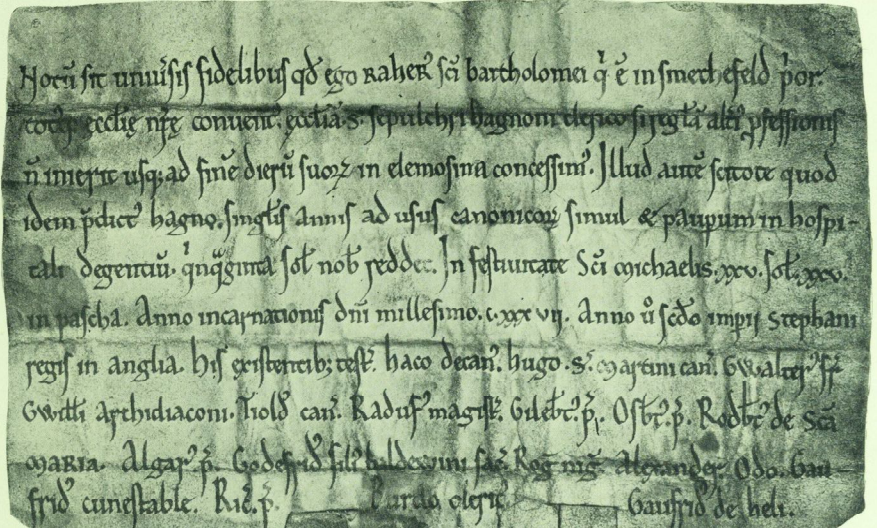 Notū sit univ̄sis fidelibus qđ ego Raher' sc̄i bartholomei q̇ ē in smethefeld p̓or.
totq; eccl̄ię nr̄ę convent'. ęccl̄iā .s. sepulchri hagnoni clerico si regl̄ā alt'i' p̱fessionis
n̄ inierit usq; ad finē dierū suoꝝ in elemosina concessim'. Illud autē scitote quod
idem p̄dict' hagno. singl̄is annis ad usus canonicoꝝ simul & paupum in hospi-
tali degentiū. q̇nq̄ginta sol̄ nob̄ reddet. In festivitate Sc̄i michaelis. xxv. sol̄. xxv.
in pascha. Anno incarnationis dn̄i millesimo. c. xxx vij. Anno ů sc̄do imp̄ij Stephani
regis in anglia. His existentib; test'. haco decan'. hugo .S. martini can'. Gwalter' fr̄
Gwill̄i Archidiaconi. can'. Raduf' magist'. Gileb̄t' p̄r. Osb̄t' p̄. Rodb̄t' de Sc̄a
MARIA. Algar' p̄. Godefrid' fili' baldewini sac̄. Roḡ niḡ. Alexander. Odo. Gau
frid' cunestable. Ric̄. p̄. cleric' Gaufrid' de heli.